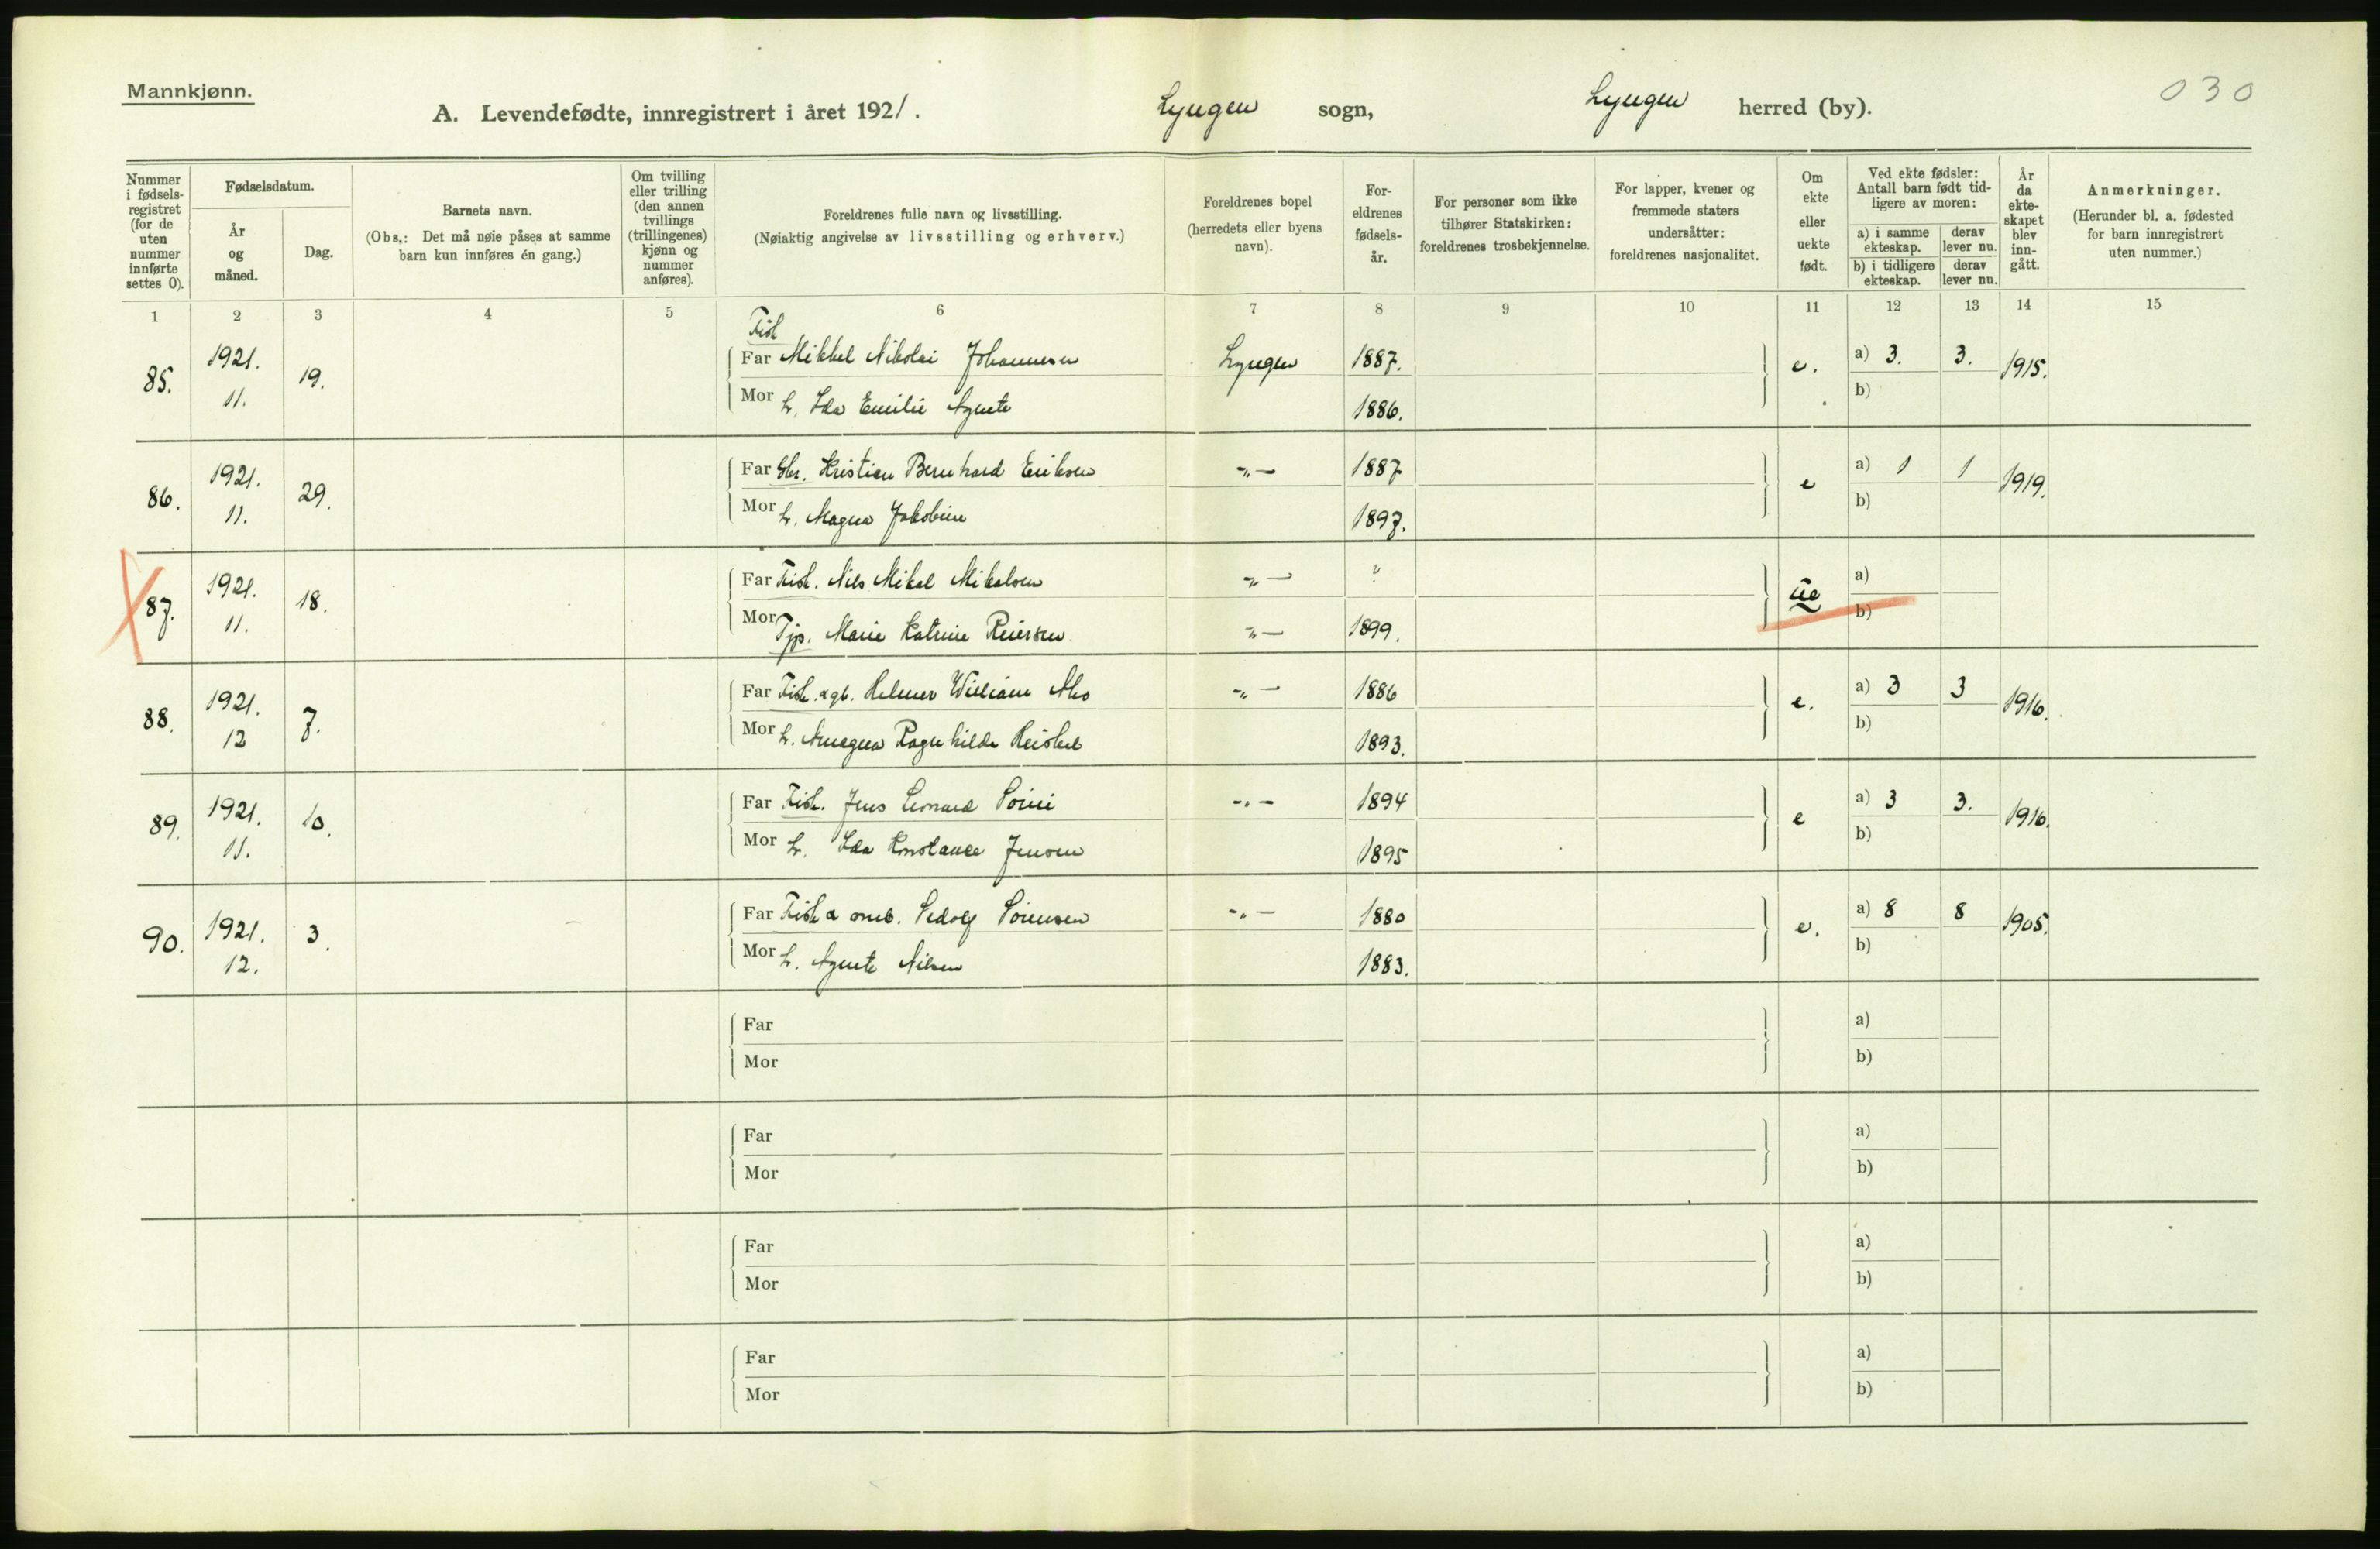 Mannkjønn.
A. Levendefødte, innregistrert i året 1921. Lyngen sogn, Lyngen herred (by). 030
Nummer i fødsels-registret (for de uten nummer innførte settes 0).
Fødselsdatum.
År og måned.
Dag.
Barnets navn.
(Obs.: Det må nøie påses at samme barn kun innføres én gang.)
Om tvilling eller trilling (den annen tvillings (trillingenes) kjønn og nummer anføres).
Foreldrenes fulle navn og livsstilling.
(Nøiaktig angivelse av livsstilling og erhverv.)
Foreldrenes bopel (herredets eller byens navn).
For-eldrenes fødsels-år.
For personer som ikke tilhører Statskirken: foreldrenes trosbekjennelse.
For lapper, kvener og fremmede staters undersåtter: foreldrenes nasjonalitet.
Om ekte eller uekte født.
Ved ekte fødsler: Antall barn født tid-ligere av moren:
a) i samme ekteskap. derav lever nu.
b) i tidligere ekteskap. derav lever nu.
År da ekte-skapet blev inn-gått.
Anmerkninger.
(Herunder bl. a. fødested for barn innregistrert uten nummer.)
1 2 3 4 5 6 7 8 9 10 11 12 13 14 15
Fisk
85. 1921. 11. 19. Far Mikkel Nikolai Johannesen Lyngen 1887. e. a) 3. 3. 1915.
Mor h. Ida Emilie Agnete 1886. b)
86. 1921. 11. 29. Far Gbr. Kristian Bernhard Eriksen -„- 1887 e a) 1 1 1919.
Mor h. Magna Jakobine 1897. b)
87. 1921. 11. 18. Far Fisk. Nils Mikal Mikalsen -„- ? ue a)
Mor Tjp. Marie Katrine Reiersen -„- 1899. b)
88. 1921. 12 7. Far Fisk. agb. Helmer William Aho -„- 1886 e. a) 3 3 1916.
Mor h. Ragnhilda 1893. b)
89. 1921. 11. 10. Far Fisk. Jens Leonard -„- 1894 e a) 3 3. 1916.
Mor h. Ida Konstance Jensen 1895 b)
90. 1921. 12. 3. Far Fisk a Sedolf Sörensen -„- 1880 e. a) 8 8 1905.
Mor h. Agnete Nilsen 1883. b)
Far a)
Mor b)
Far a)
Mor b)
Far a)
Mor b)
Far a)
Mor b)